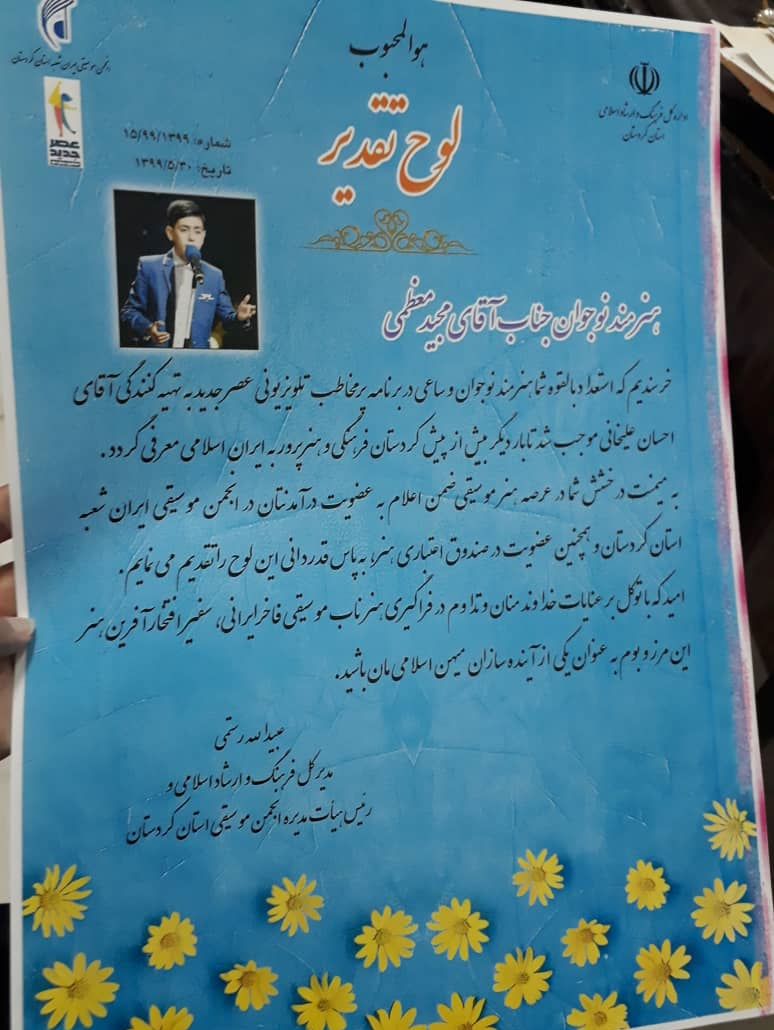 هوالمحبوب
اداره کل فرهنگ و ارشاد اسلامی
استان کردستان
انجمن موسیقی ایران شعبه استان کردستان
عصر
جدید
لوح تقدیر
شماره: ۱۵/۹۹/۱۳۹۹
تاریخ: ۱۳۹۹/۵/۳۰
هنرمند نوجوان جناب آقای مجید معظمی
خرسندیم که استعداد بالقوه شما هنرمند نوجوان و ساعی در برنامه پرمخاطب تلویزیونی عصر جدید به تهیه کنندگی آقای
احسان علیخانی موجب شد تا بار دیگر بیش از پیش کردستان فرهنگی و هنرپرور به ایران اسلامی معرفی گردد.
به میمنت درخشش شما در عرصه هنر موسیقی ضمن اعلام به عضویت درآمدنتان در انجمن موسیقی ایران شعبه
استان کردستان و همچنین عضویت در صندوق اعتباری هنر، به پاس قدردانی این لوح را تقدیم می نمایم.
امید که با توکل بر عنایات خداوند منان و تداوم در فراگیری هنر ناب موسیقی فاخر ایرانی، سفیر افتخارآفرین هنر
این مرز و بوم به عنوان یکی از آینده سازان میهن اسلامی مان باشید.
عبیدالله رستمی
مدیر کل فرهنگ و ارشاد اسلامی و
رئیس هیأت مدیره انجمن موسیقی استان کردستان